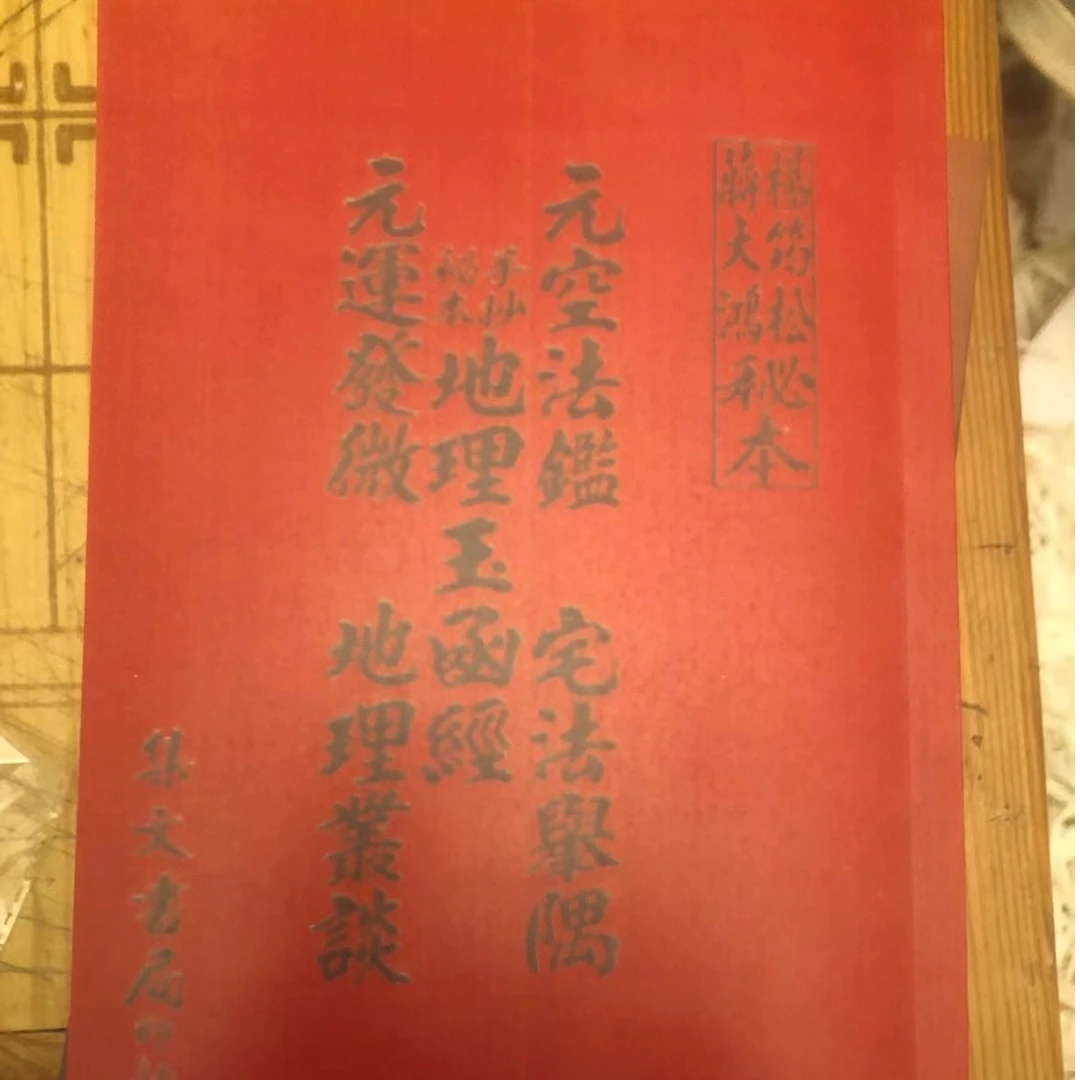 楊筠松
蔣大鴻
秘本
元空法鑑 宅法舉隅
手抄
本
地理玉函經
元運發微 地理叢談
集文書局印